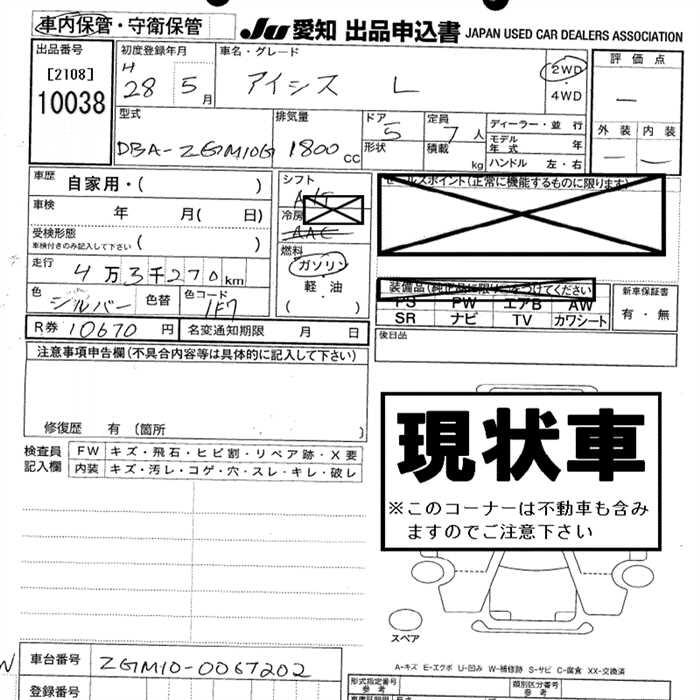 車内保管・守衛保管
JU 愛知 出品申込書 JAPAN USED CAR DEALERS ASSOCIATION
出品番号
[2108]
10038
初度登録年月
H
28 5月
車名・グレード
アイシス L
2WD
・
4WD
評価点
—
外装 内装
— —
型式
DBA-ZGM10G
排気量
1800cc
ドア
5
形状
定員
7人
積載
kg
ディーラー・並行
モデル年式 年
ハンドル 左・右
車歴 自家用・( )
車検 年 月( 日)
受検形態
車検付きのみ記入して下さい ( )
走行 4万3千270km
色 シルバー 色替 色コード 1F7
R券 10670円 名変通知期限 月 日
シフト
冷房
AAC
燃料
ガソリン
軽・油
( )
セールスポイント(正常に機能するものに限ります)
装備品(純正品に限り○をつけてください)
PS PW エアB AW
SR ナビ TV カワシート
新車保証書
有・無
後日品
注意事項申告欄(不具合内容等は具体的に記入して下さい)
修復歴 有(箇所 )
検査員
記入欄
FW キズ・飛石・ヒビ割・リペア跡・X要
内装 キズ・汚レ・コゲ・穴・スレ・キレ・破レ
現状車
※このコーナーは不動車も含み
ますのでご注意下さい
スペア
A-キズ E-エクボ U-凹み W-補修跡 S-サビ C-腐食 XX-交換済
車台番号 ZGM10-0067202
登録番号
形式指定番号
参考
類別区分番号
参考